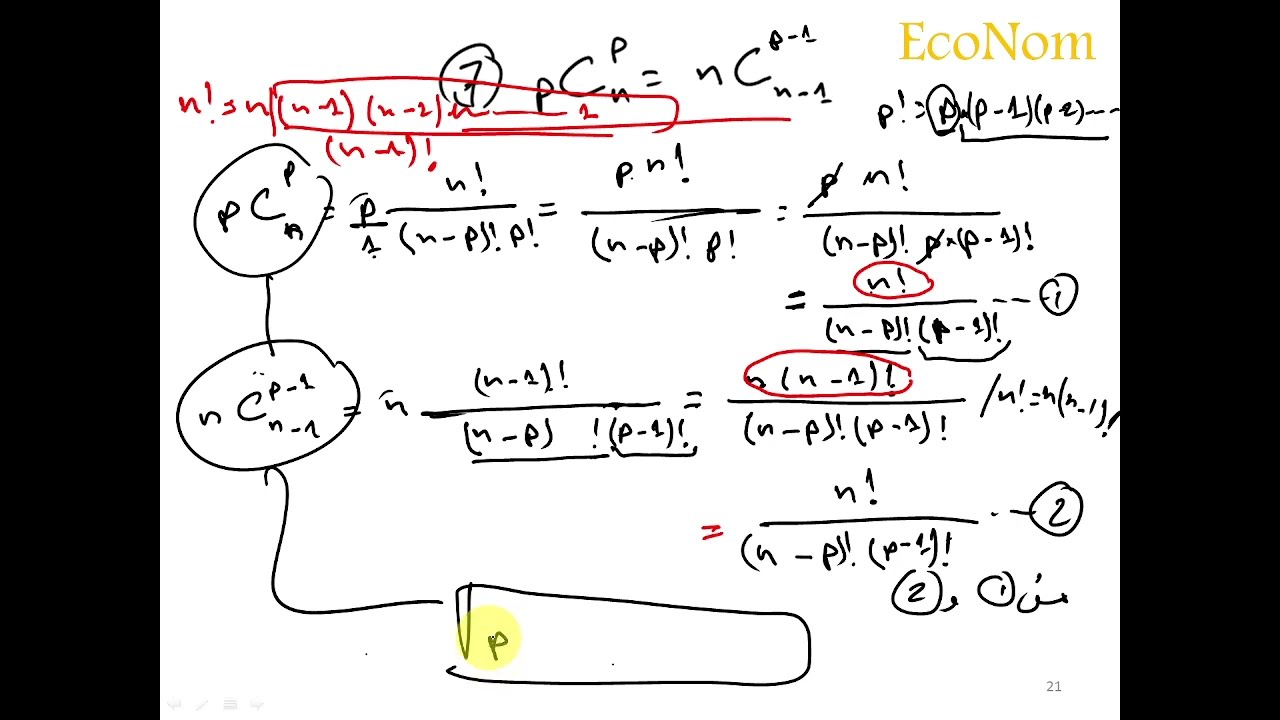 EcoNom
7 pC_n^p = nC_{n-1}^{p-1}
n! = n(n-1)(n-2) ------ 1
p! = p×(p-1)(p-2)----
(n-1)!
pC_n^p = p/1 n!/((n-p)! p!) = p n!/((n-p)! p!) = p n!/((n-p)! p×(p-1)!)
= n!/((n-p)! (p-1)!) --- 1
nC_{n-1}^{p-1} = n (n-1)!/((n-p) ! (p-1)!) = n(n-1)!/((n-p)! (p-1)!) / n! = n(n-1)!
= n!/((n-p)! (p-1)!) --- 2
من 1 و 2
p
21